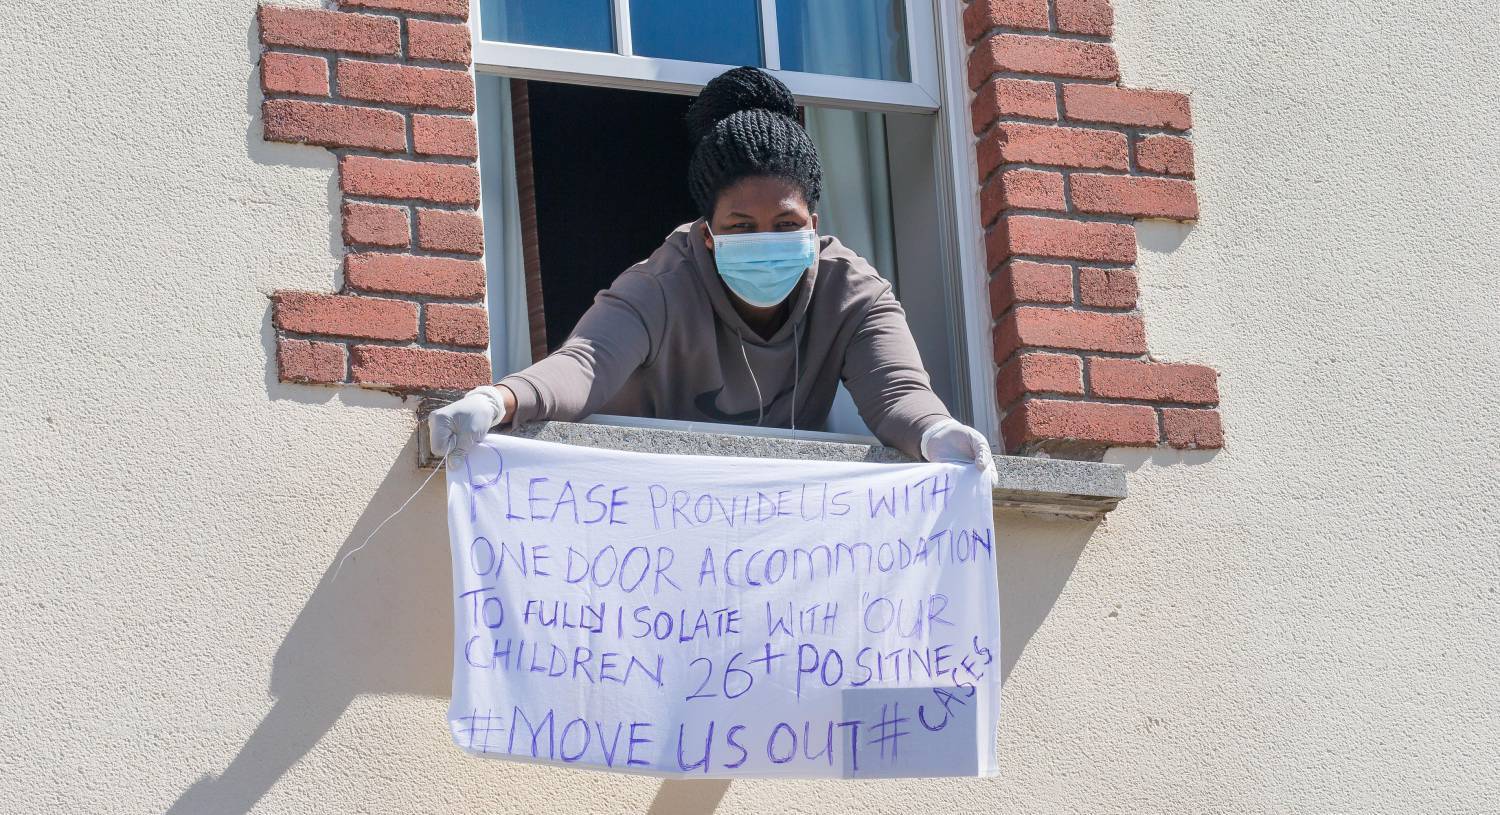 PLEASE PROVIDE US WITH
ONE DOOR ACCOMMODATION
TO FULLY ISOLATE WITH "OUR
CHILDREN 26+ POSITINE CASES
#MOVE US OUT#